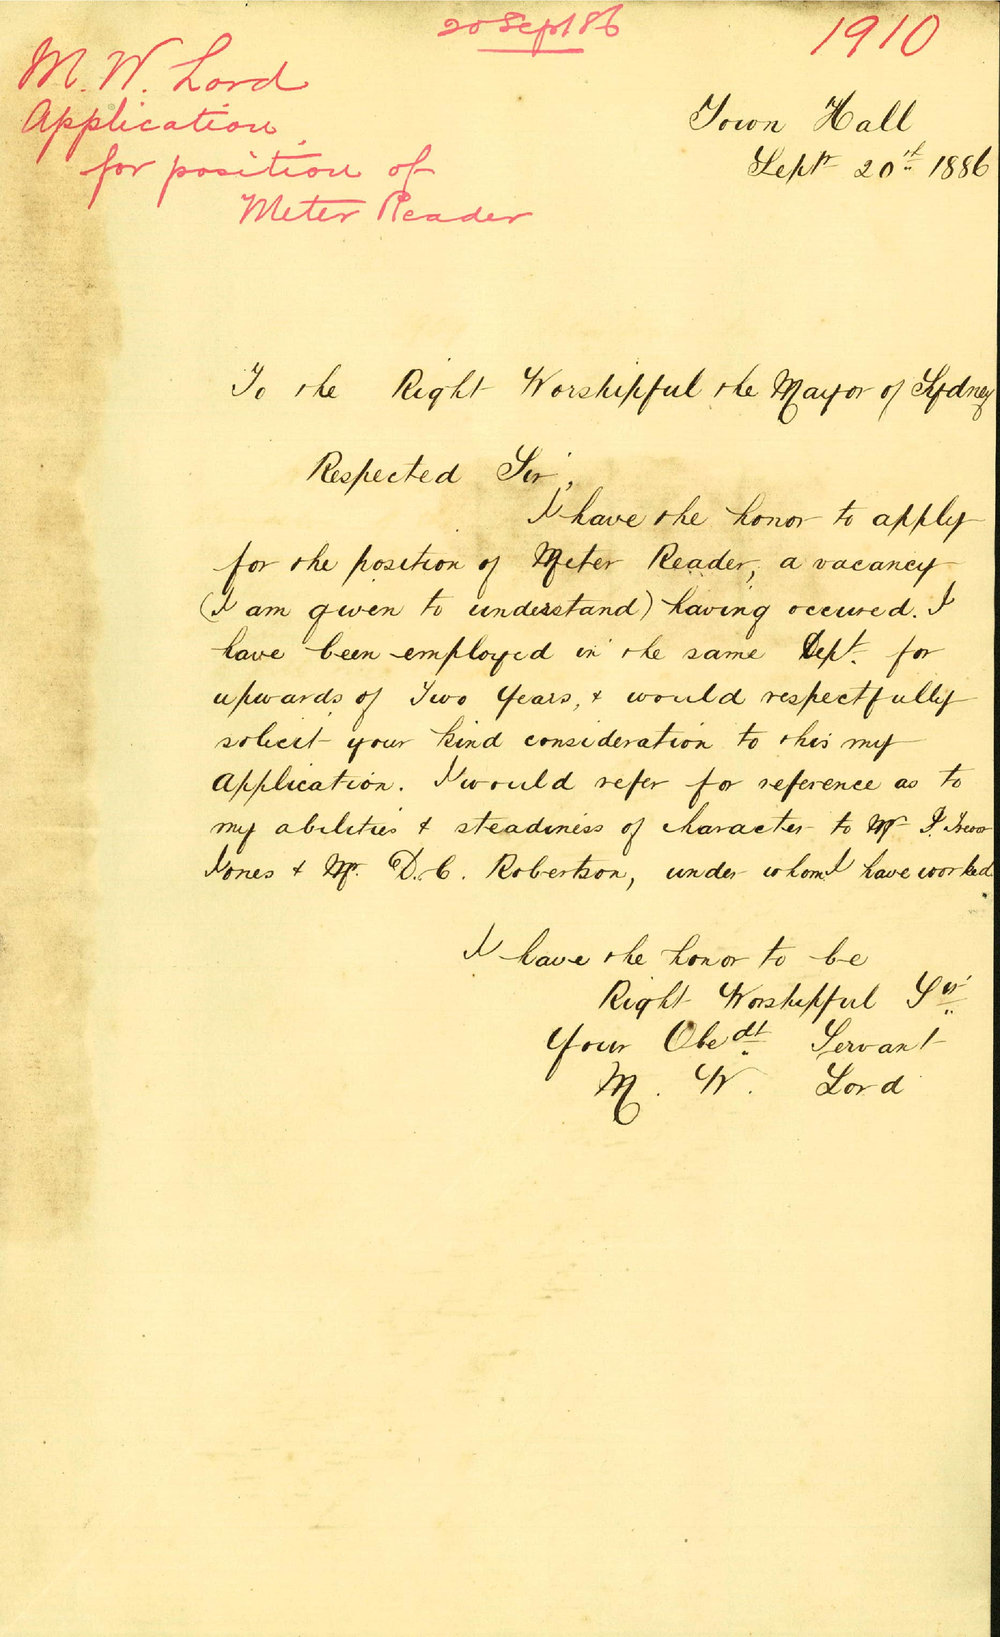 20 Sept 86
1910
M. W. Lord
Application
for position of
Meter Reader
Town Hall
Septr 20th 1886
To the Right Worshipful the Mayor of Sydney
Respected Sir,
I have the honor to apply
for the position of Meter Reader, a vacancy
(I am given to understand) having occured. I
have been employed in the same Dept. for
upwards of Two Years, & would respectfully
solicit your kind consideration to this my
Application. I would refer for reference as to
my abilities & steadiness of character to Mr. J. Trevor
Jones & Mr. D. C. Robertson, under whom I have worked.
I have the honor to be
Right Worshipful Sir
Your Obedt Servant
M. W. Lord